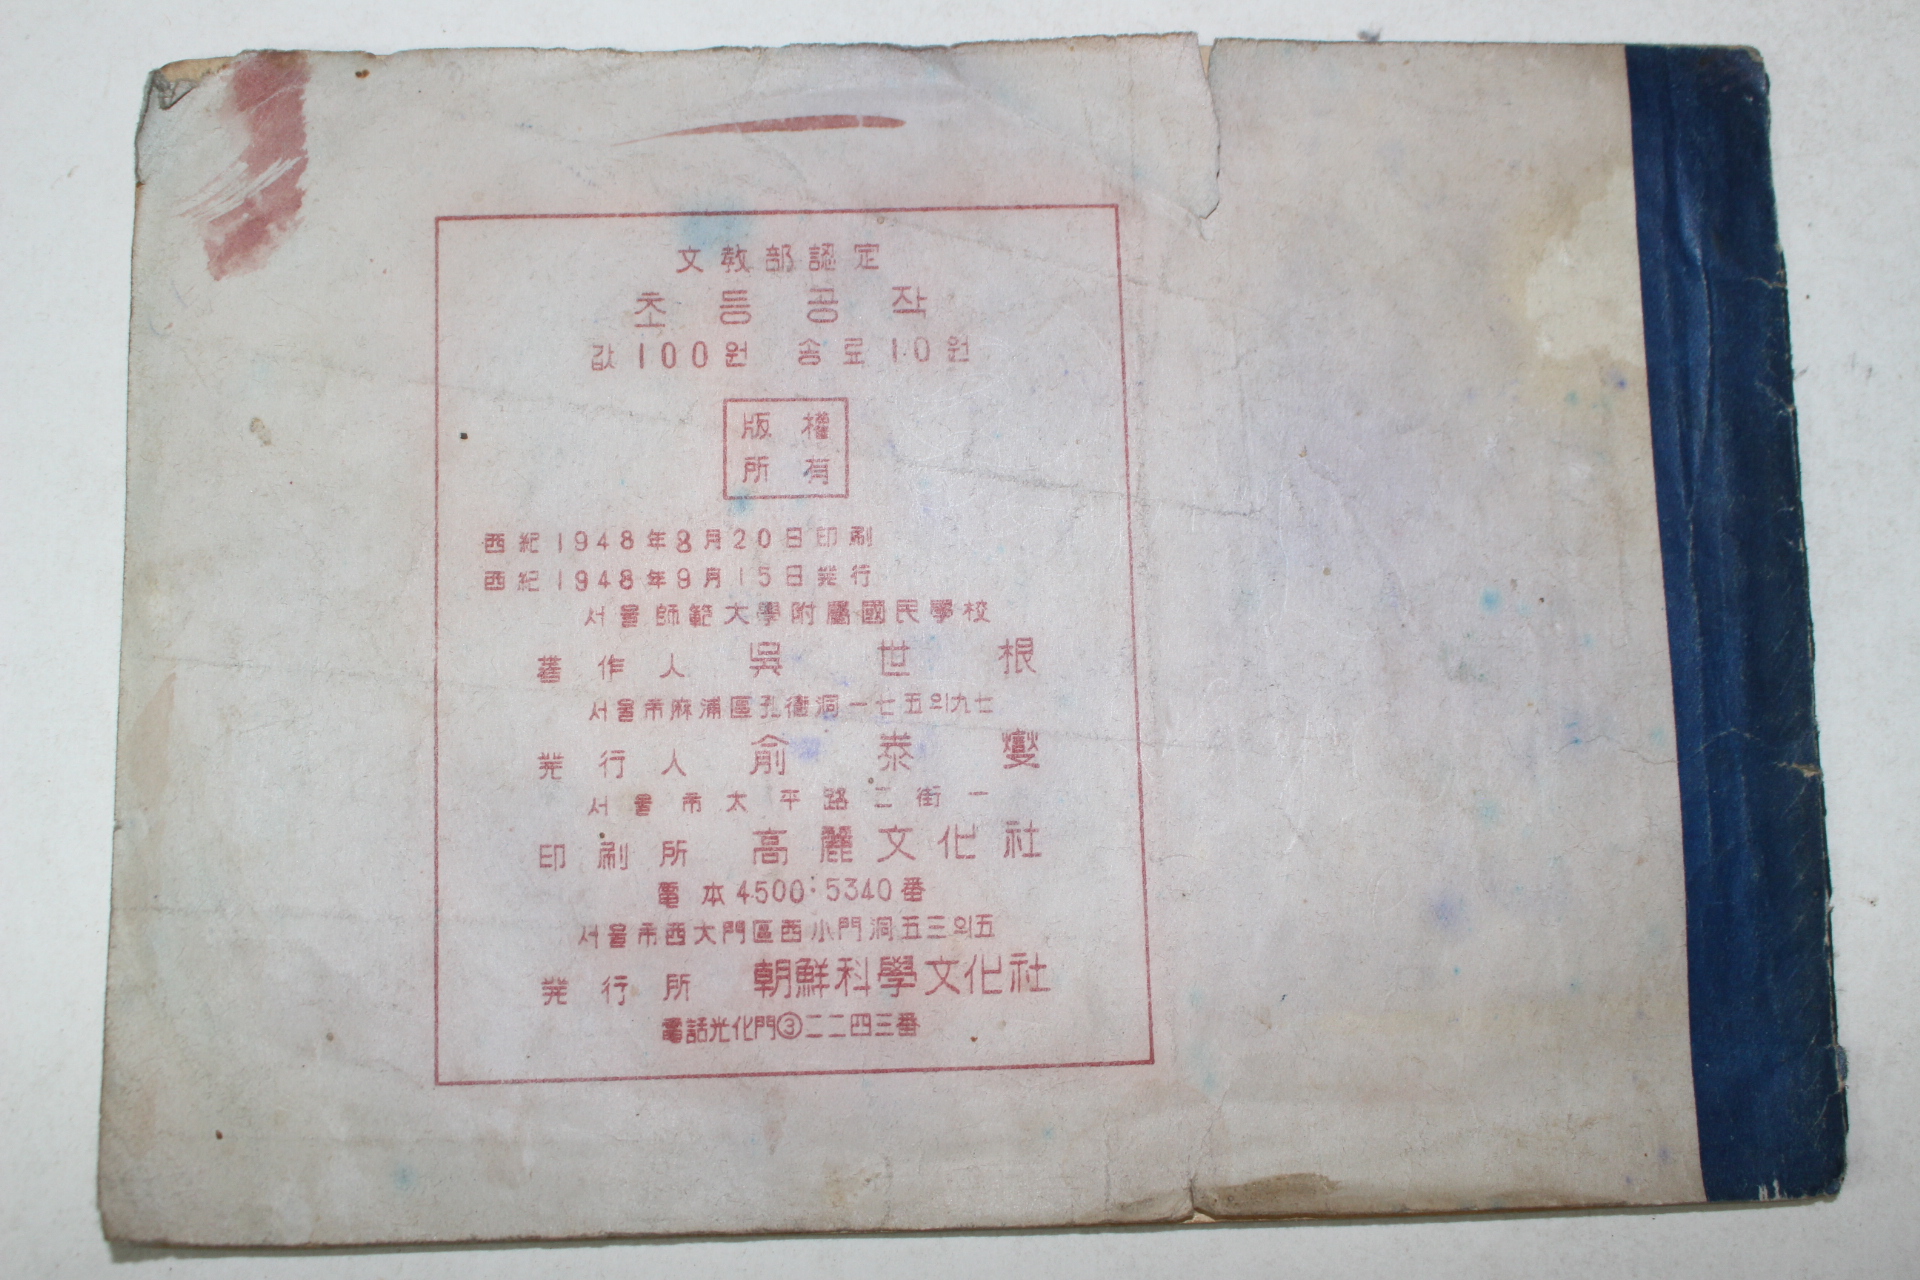 文教部認定
초등공작
값 100원 송료 10원
版權
所有
西紀1948年8月20日印刷
西紀1948年9月15日発行
서울師範大學附屬國民學校
著作人 吳世根
서울市麻浦區孔德洞一七五의九七
発行人 俞泰燮
서울市太平路二街一
印刷所 高麗文化社
電本4500:5340番
서울市西大門區西小門洞五三의五
発行所 朝鮮科學文化社
電話光化門③二二四三番